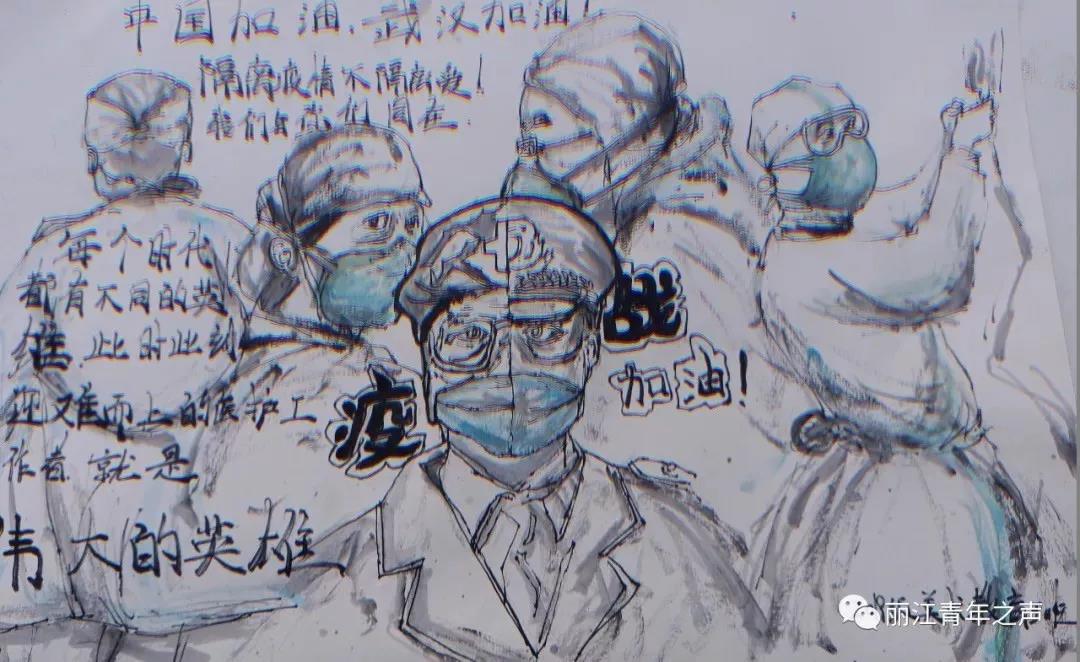 中国加油、武汉加油!
隔离疫情不隔离爱!
我们与你们同在.
每个时代
都有不同的英
雄.此时此刻
迎难而上的医护工
作者 就是
伟大的英雄
疫
战
加油!
丽江青年之声